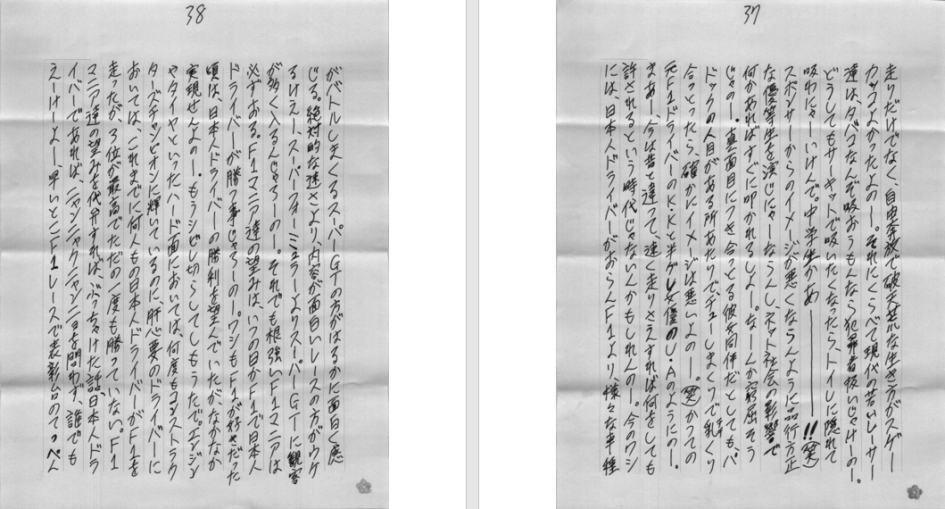 37
走りだけでなく、自由奔放で破天荒な生き方がスゲー
カッコよかったよのー。それにくらべて現代の若いレーサー
達は、タバコなんぞ吸おうもんなら犯罪者扱いじゃけーのー。
どうしてもサーキットで吸いたくなったらトイレに隠れて
吸わにゃーいけんで。中学生かあーーーーーー!!(笑)
スポンサーからのイメージが悪くならんように品行方正
な優等生を演じにゃーならんし、ネット社会の影響で
何かあればすぐに叩かれるしよー。なーんか窮屈そう
じゃのー。真面目につき合っとる彼女同伴だとしても、パ
ドックの人目がある所あたりでチューしまくりで乳くり
合っとったら、確かにイメージは悪いよのー。(笑)かつての
元F1ドライバーのK・Kと半ゲレ女優のJ・Aのようにのー。
まあー今は昔と違って、速く走りさえすれば何をしても
許されるという時代じゃないんかもしれんのー。今のワシ
には、日本人ドライバーがおらんF1より、様々な車種
38
がバトルしまくるスーパーGTの方がはるかに面白く感
じる。絶対的な速さより、内容が面白いレースの方がウケ
るけえー、スーパーフォーミュラーよりスーパーGTに観客
が多く入るんじゃろーのー。それでも根強いF1マニアは
必ずおる。F1マニア達の望みは、いつの日かF1で日本人
ドライバーが勝つ事じゃろーのー。ワシもF1が好きだった
頃は、日本人ドライバーの勝利を望んでいたが、なかなか
実現せんよのー。もうシビレ切らしてしもうたで。エンジン
やタイヤといったハード面においては、何度もコンストラク
ターズチャンピオンに輝いているのに、肝心要のドライバーに
おいては、これまでに何人もの日本人ドライバーがF1を
走ったが、3位が最高でただの一度も勝っていない。F1
マニア達の望みを代弁すれば、ぶっちゃけた話、日本人ドラ
イバーであれば、ニャンニャクニャンニョを問わず、誰でも
えーけーよー、早いとこF1レースで表彰台のてっぺん